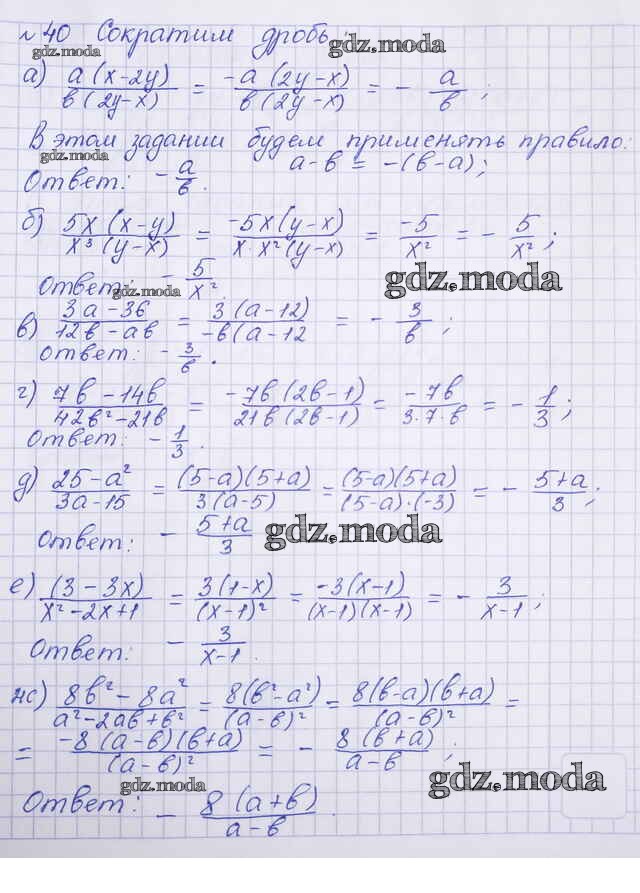 № 40 Сократим дробь
gdz.moda
gdz.moda
а) a(x-2y)/b(2y-x) = -a(2y-x)/b(2y-x) = - a/b ;
В этом задании будем применять правило:
gdz.moda
a-b = -(b-a);
Ответ: - a/b .
б) 5x(x-y)/x³(y-x) = -5x(y-x)/x·x²(y-x) = -5/x² = - 5/x² ;
Ответ: - 5/x² .
gdz.moda
gdz.moda
в) 3a-36/12b-ab = 3(a-12)/-b(a-12 = - 3/b ;
Ответ: - 3/b .
г) 7b-14b/42b²-21b = -7b(2b-1)/21b(2b-1) = -7b/3·7·b = - 1/3 ;
Ответ: - 1/3 .
д) 25-a²/3a-15 = (5-a)(5+a)/3(a-5) = (5-a)(5+a)/(5-a)·(-3) = - 5+a/3 ;
Ответ: - 5+a/3
gdz.moda
е) (3-3x)/x²-2x+1 = 3(1-x)/(x-1)² = -3(x-1)/(x-1)(x-1) = - 3/x-1 ;
Ответ: - 3/x-1 .
ж) 8b²-8a²/a²-2ab+b² = 8(b²-a²)/(a-b)² = 8(b-a)(b+a)/(a-b)² =
= -8(a-b)(b+a)/(a-b)² = - 8(b+a)/a-b ;
gdz.moda
gdz.moda
Ответ: - 8(a+b)/a-b .